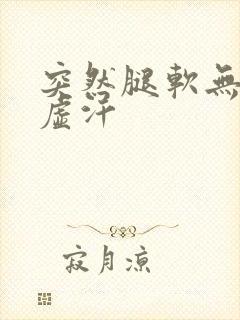 突然腿軟無
虛汗
寂月涼